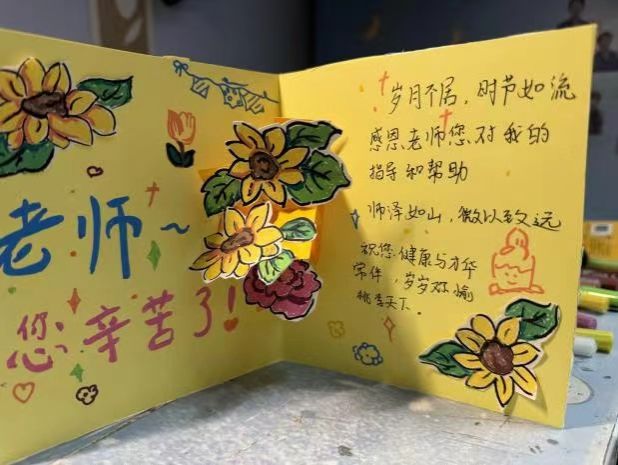 老师~
您辛苦了!
岁月不居,时节如流
感恩老师您对我的
指导和帮助
师泽如山,微以致远
祝您健康与才华
常伴,岁岁欢愉
桃李天下.